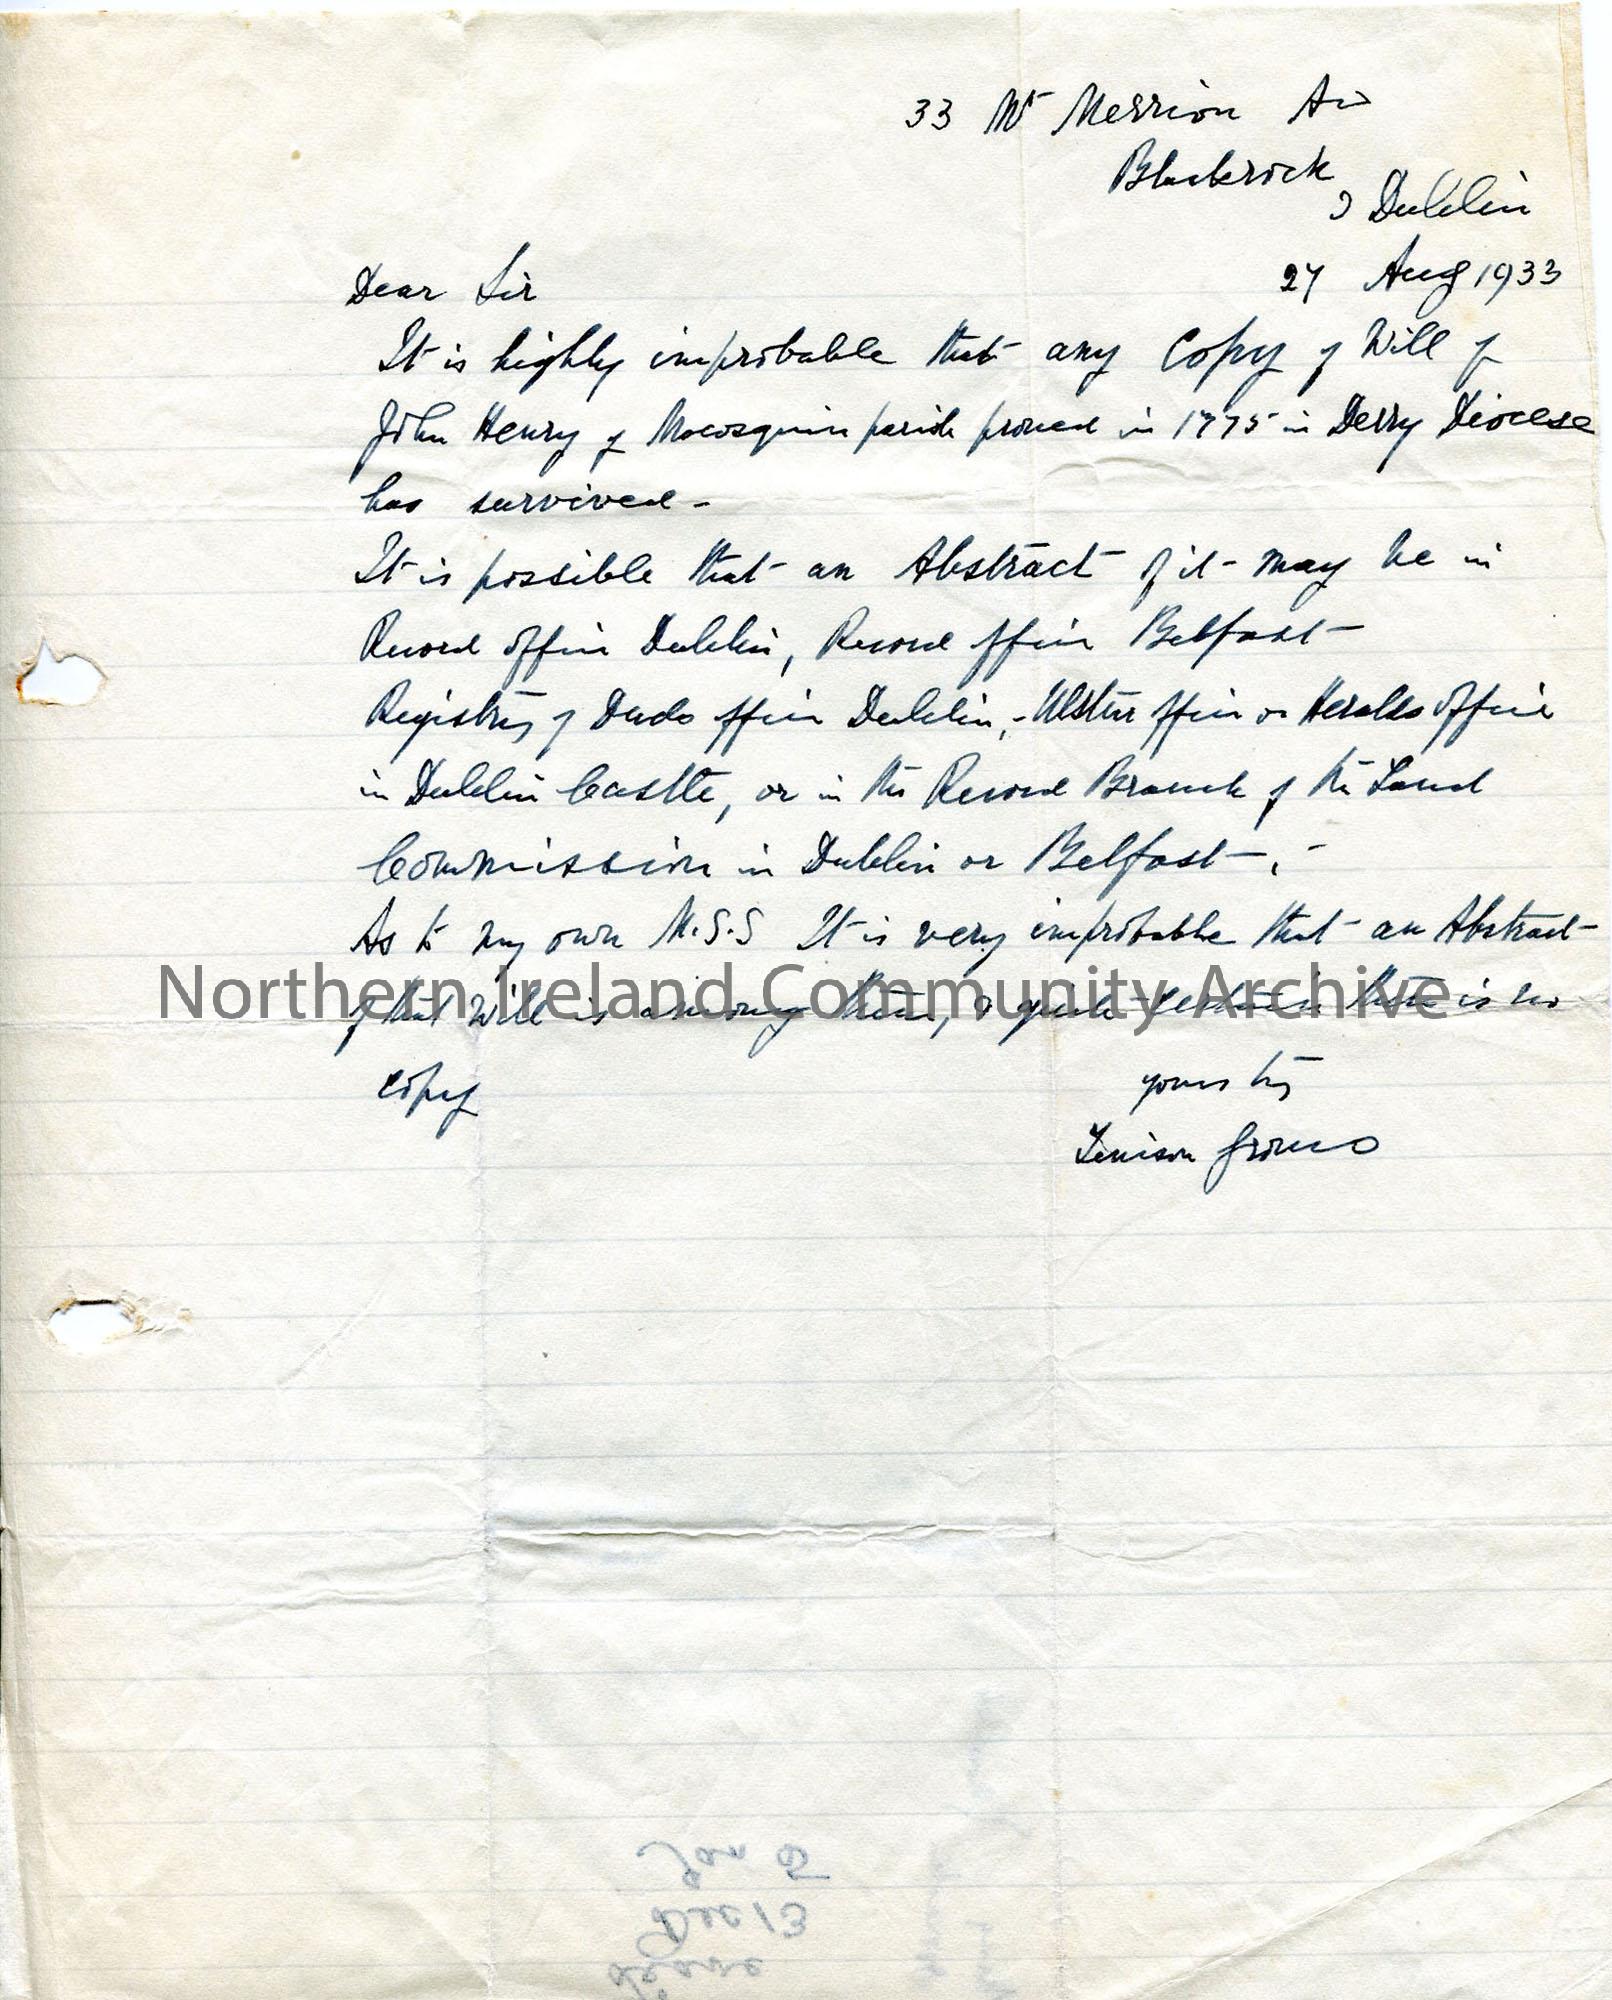 33 Mt Merrion Av
Blackrock
Dublin
27 Aug 1933
Dear Sir
It is highly improbable that any Copy of Will of
John Henry of Macosquin parish proved in 1775 in Derry Diocese
has survived -
It is possible that an Abstract of it may be in
Record office Dublin, Record office Belfast
Registry of Deeds office Dublin, - Ulster office or Heralds office
in Dublin Castle, or in the Record Branch of the Land
Commission in Dublin or Belfast. -
As to my own M.S.S It is very improbable that an Abstract
of that Will is among them, & quite certain there is no
Northern Ireland Community Archive
copy
yours try
Tenison Groves
Jan 5
Dec 13